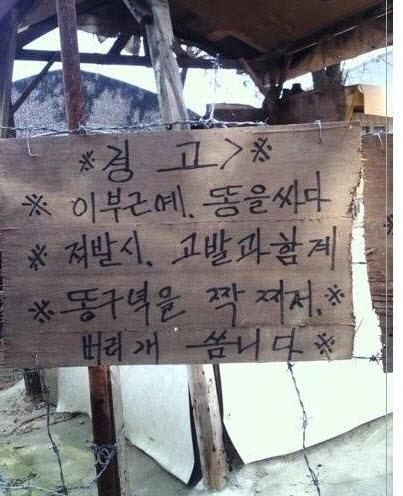 ※경고>※
※ 이부근에. 똥을싸다
※ 저발시. 고발과함게
※똥구녁을 짝 찌저.※
버리개 씀니다※